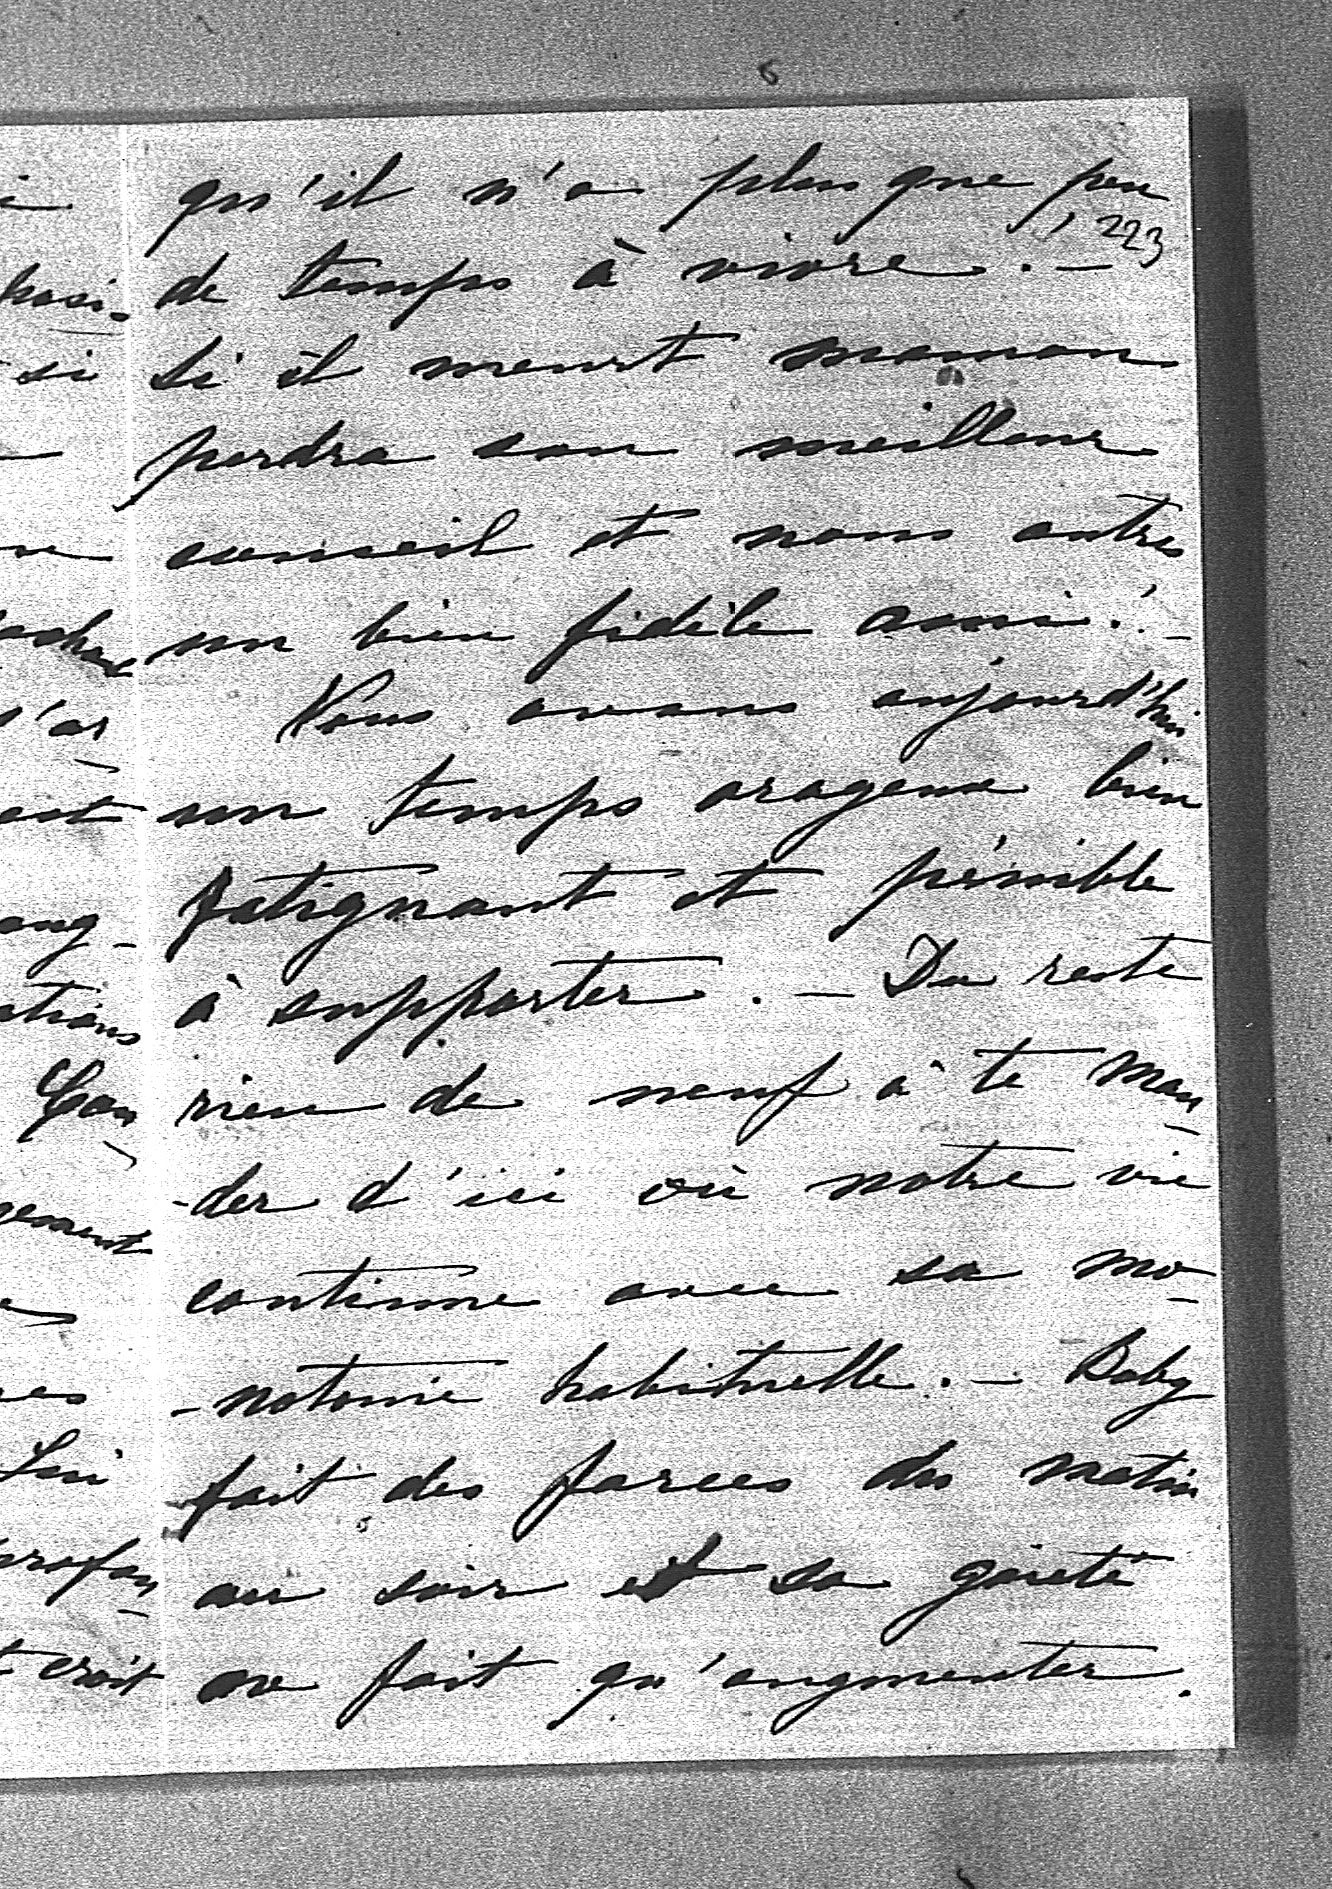 qu'il n'a plus que peu
223
de temps à vivre. —
Si il meurt maman
perdra son meilleur
conseil et nous autres
un bien fidèle ami! —
Nous avons aujourd'hui
un temps orageux bien
fatignant et pénible
à supporter. — Du reste
rien de neuf à te man-
-der d'ici où notre vie
continue avec sa mo-
-notonie habituelle. — Baby
fait des farces du matin
au soir et sa gaieté
ne fait qu'augmenter.
si
s'ar
est
Lui
croit